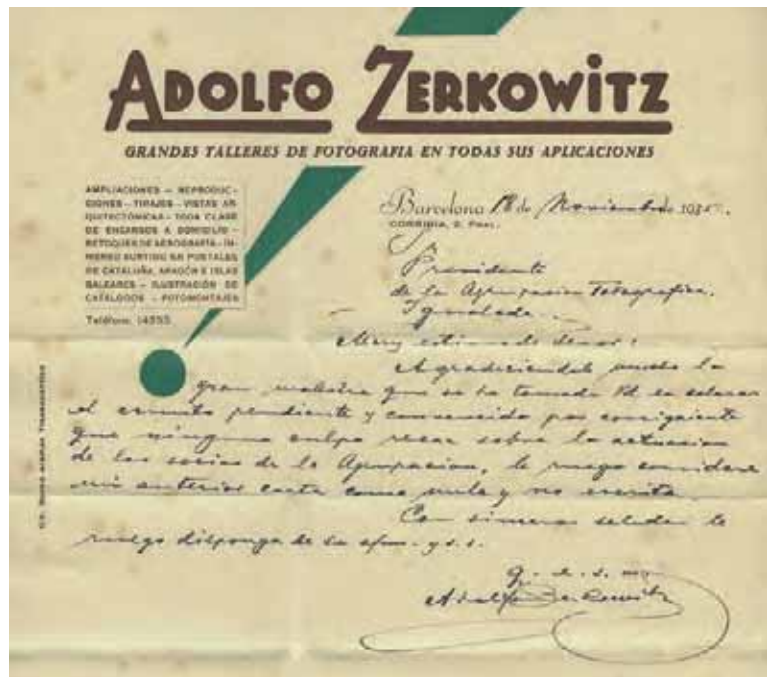 ADOLFO ZERKOWITZ
GRANDES TALLERES DE FOTOGRAFIA EN TODAS SUS APLICACIONES
AMPLIACIONES – REPRODUC-
CIONES – TIRAJES – VISTAS AR-
QUITECTÓNICAS – TODA CLASE
DE ENCARGOS A DOMICILIO –
RETOQUES DE AEROGRAFÍA – IN-
MENSO SURTIDO EN POSTALES
DE CATALUÑA, ARAGÓN E ISLAS
BALEARES – ILUSTRACIÓN DE
CATÁLOGOS – FOTOMONTAJES
Teléfono 14555
Barcelona 18 de Noviembre 193
CORRIBIA, 2, PRAL.
Sr
Presidente
de la Agrupacion Fotografica.
Igualada
Muy estimado Señor:
Agradeciendole mucho la
gran molestia que se ha tomado Vd en aclarar
el asunto pendiente y convencido por consiguiente
que ninguna culpa recae sobre la actuacion
de los socios de la Agrupacion, le ruego considere
mi anterior carta como nula y no escrita.
Con sinceros saludos le
ruego disponga de su afmo. y s. s.
q. e. s. m.
Adolfo Zerkowitz